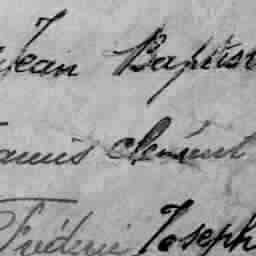 Jean Baptist
Clément
Fréderic Joseph